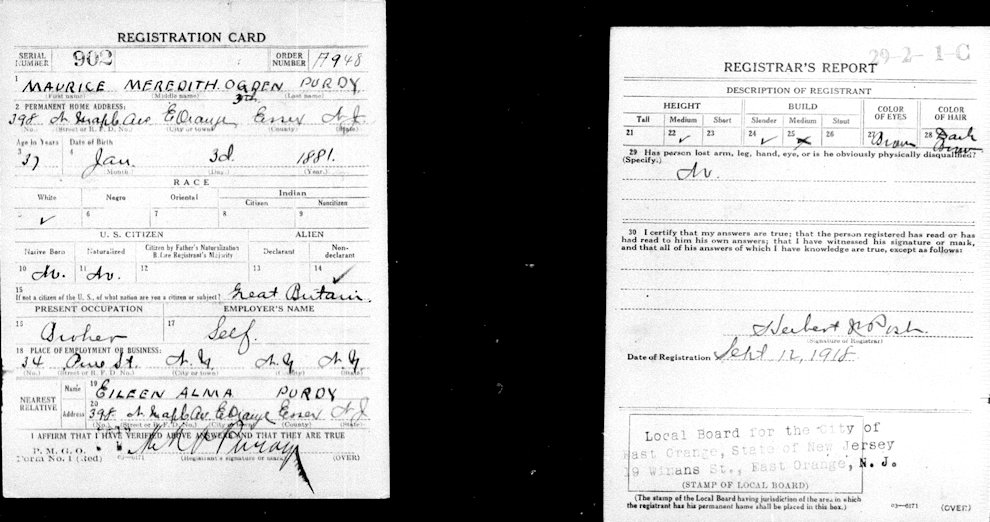 REGISTRATION CARD
SERIAL NUMBER 902 ORDER NUMBER A948
1 MAURICE MEREDITH OGDEN PURDY
(First name) (Middle name) (Last name)
2 PERMANENT HOME ADDRESS:
398 N Maple Ave E Orange Essex N.J.
(No.) (Street or R. F. D. No.) (City or town) (County) (State)
Age in Years Date of Birth
3 37 4 Jan 3d 1881.
(Month.) (Day.) (Year.)
RACE
White Negro Oriental Indian
Citizen Noncitizen
5 ✓ 6 7 8 9
U. S. CITIZEN ALIEN
Native Born Naturalized Citizen by Father's Naturalization Before Registrant's Majority Declarant Non-declarant
10 No. 11 No. 12 13 14 ✓
15
If not a citizen of the U. S., of what nation are you a citizen or subject? Great Britain
PRESENT OCCUPATION EMPLOYER'S NAME
16 Broker 17 Self.
18 PLACE OF EMPLOYMENT OR BUSINESS:
34 Pine St. N.Y. N.Y. N.Y.
(No.) (Street or R. F. D. No.) (City or town) (County) (State)
NEAREST RELATIVE
Name 19 EILEEN ALMA PURDY
Address 20 398 N Maple Av. E Orange Essex N.J.
(No.) (Street or R. F. D. No.) (City or town) (County) (State)
I AFFIRM THAT I HAVE VERIFIED ABOVE ANSWERS AND THAT THEY ARE TRUE
P. M. G. O.
Form No. 1 (Red) 03—6171 (Registrant's signature or mark) (OVER)
29-2-1-C
REGISTRAR'S REPORT
DESCRIPTION OF REGISTRANT
HEIGHT BUILD COLOR OF EYES COLOR OF HAIR
Tall Medium Short Slender Medium Stout
21 22 ✓ 23 24 ✓ 25 26 27 Brown 28 Dark Brown
29 Has person lost arm, leg, hand, eye, or is he obviously physically disqualified?
(Specify.)
No.
30 I certify that my answers are true; that the person registered has read or has
had read to him his own answers; that I have witnessed his signature or mark,
and that all of his answers of which I have knowledge are true, except as follows:
Herbert
(Signature of Registrar)
Date of Registration Sept 12, 1918
Local Board for the City of
East Orange, State of New Jersey
19 Winans St., East Orange, N. J.
(STAMP OF LOCAL BOARD)
(The stamp of the Local Board having jurisdiction of the area in which
the registrant has his permanent home shall be placed in this box.)
03—6171 (OVER)